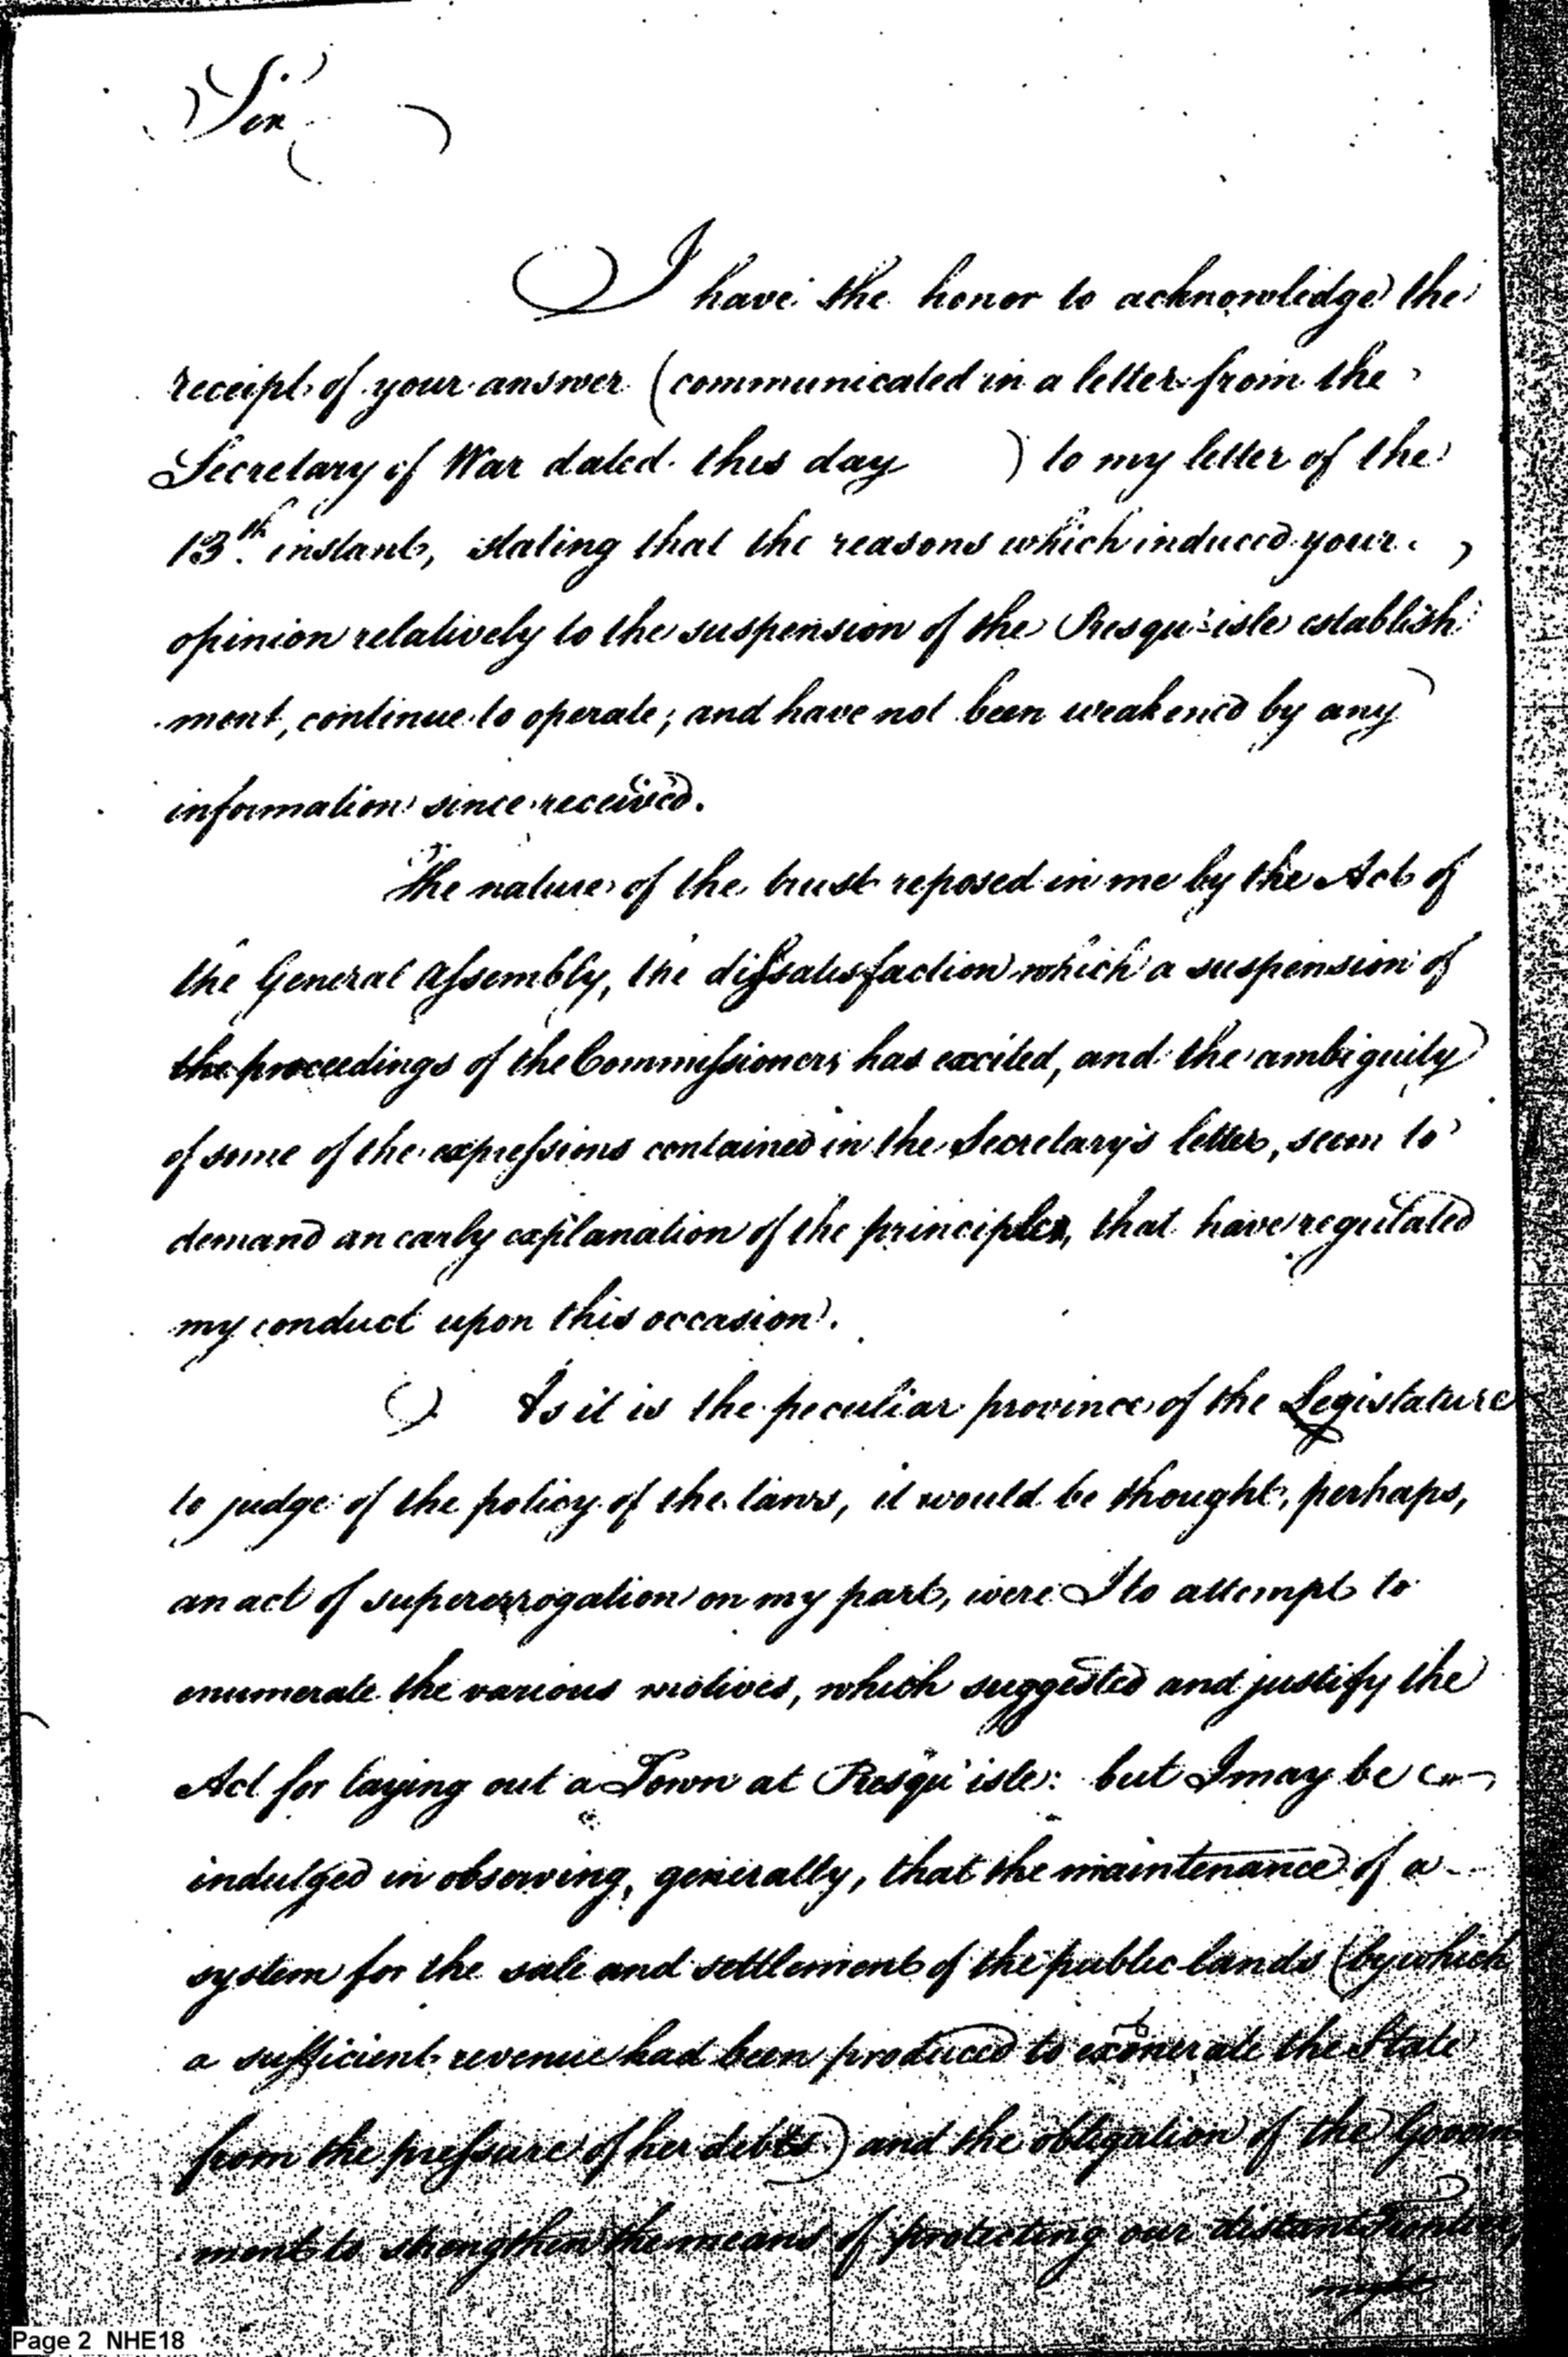 Sir
I have the honor to acknowledge the
receipt of your answer (communicated in a letter from the
Secretary of War dated this day ) to my letter of the
13th. instant, stating that the reasons which induced your
opinion relatively to the suspension of the Presqu'-isle establish
ment, continue to operate; and have not been weakened by any
information since received.
The nature of the trust reposed in me by the Act of
the General Assembly, the dissatisfaction which a suspension of
the proceedings of the Commissioners has excited, and the ambiguity
of some of the expressions contained in the Secretary's letter, seem to
demand an early explanation of the principles, that have regulated
my conduct upon this occasion.
As it is the peculiar province of the Legislature
to judge of the policy of the laws, it would be thought, perhaps,
an act of supererrogation on my part, were I to attempt to
enumerate the various motives, which suggested and justify the
Act for laying out a Town at Presqu'isle: but I may be
indulged in observing, generally, that the maintenance of a
system for the sale and settlement of the public lands (by which
a sufficient revenue had been produced to exonerate the State
from the pressure of her debts) and the obligation of the Govern
ment to strengthen the means of protecting our distant Frontier,
might
Page 2 NHE18